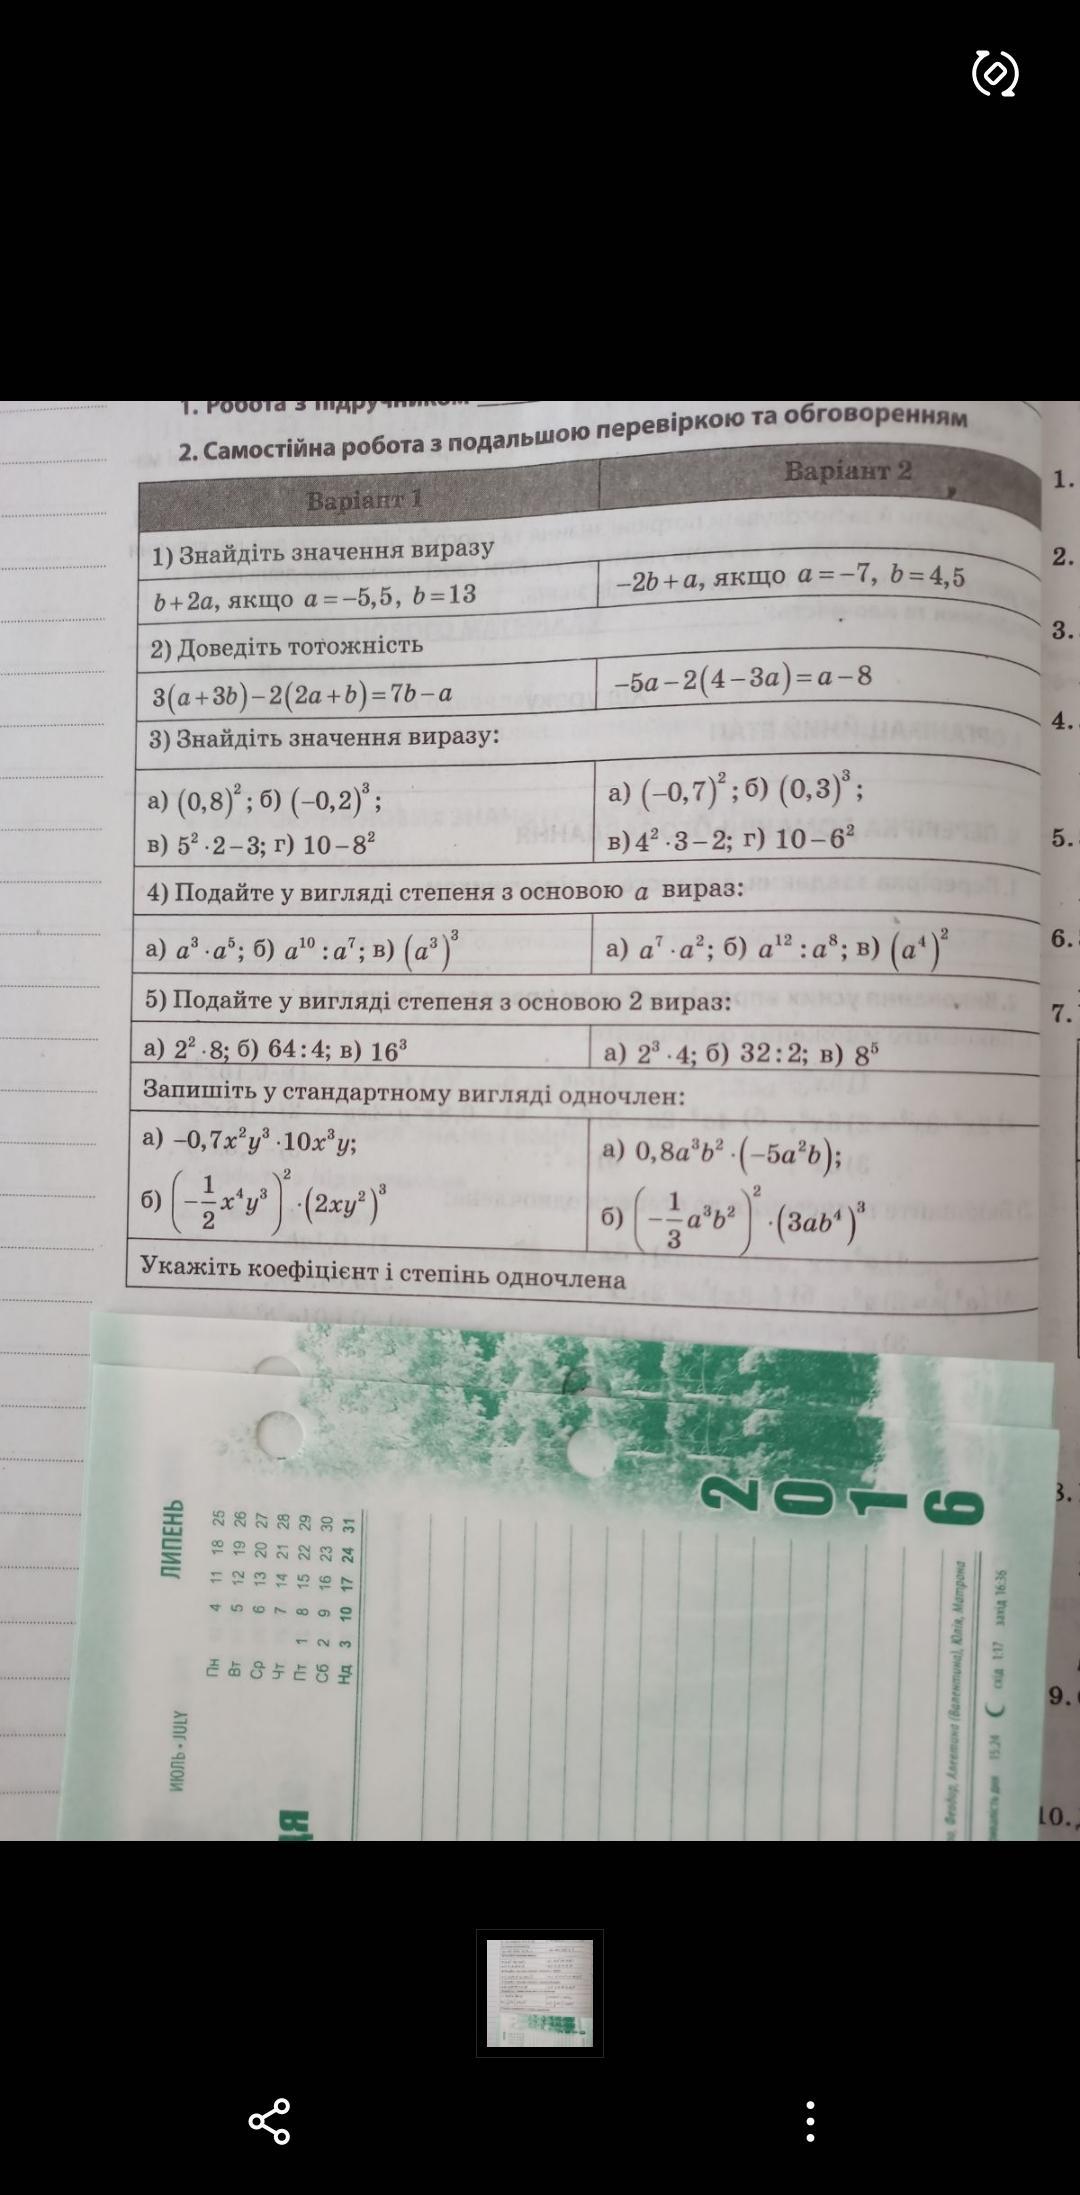 2. Самостійна робота з подальшою перевіркою та обговоренням
Варіант 1 Варіант 2
1) Знайдіть значення виразу
b+2a, якщо a=−5,5, b=13
−2b+a, якщо a=−7, b=4,5
2) Доведіть тотожність
3(a+3b)−2(2a+b)=7b−a
−5a−2(4−3a)=a−8
3) Знайдіть значення виразу:
а) (0,8)²; б) (−0,2)³;
в) 5²·2−3; г) 10−8²
а) (−0,7)²; б) (0,3)³;
в) 4²·3−2; г) 10−6²
4) Подайте у вигляді степеня з основою a вираз:
а) a³·a⁵; б) a¹⁰:a⁷; в) (a³)³
а) a⁷·a²; б) a¹²:a⁸; в) (a⁴)²
5) Подайте у вигляді степеня з основою 2 вираз:
а) 2²·8; б) 64:4; в) 16³
а) 2³·4; б) 32:2; в) 8⁵
Запишіть у стандартному вигляді одночлен:
а) −0,7x²y³·10x³y;
б) (−1/2x⁴y³)²·(2xy²)³
а) 0,8a³b²·(−5a²b);
б) (−1/3a³b²)²·(3ab⁴)³
Укажіть коефіцієнт і степінь одночлена
1.
2.
3.
4.
5.
6.
7.
9.
10.
2016
ЛИПЕНЬ
ИЮЛЬ • JULY
Пн 4 11 18 25
Вт 5 12 19 26
Ср 6 13 20 27
Чт 7 14 21 28
Пт 1 8 15 22 29
Сб 2 9 16 23 30
Нд 3 10 17 24 31
(Валентина), Юлія, Матрона
15.24 схід 1:17 захід 16:36